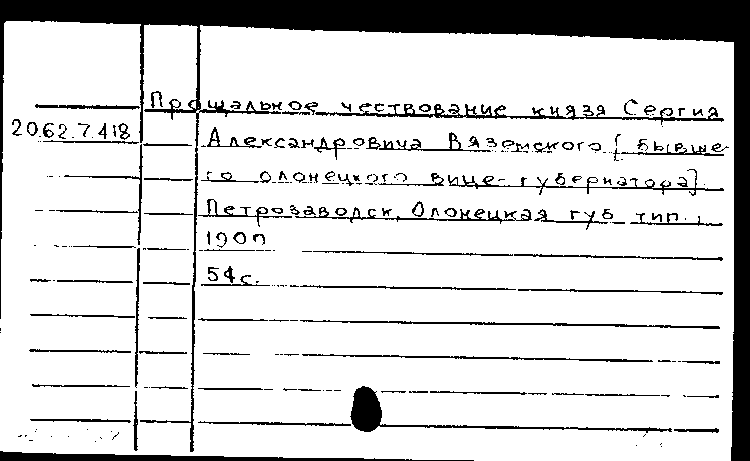 Прощальное чествование князя Сергия
20.62.7.418
Александровича Вяземского [бывше-
го олонецкого вице-губернатора].
Петрозаводск, Олонецкая губ. тип.,
1900
54с.